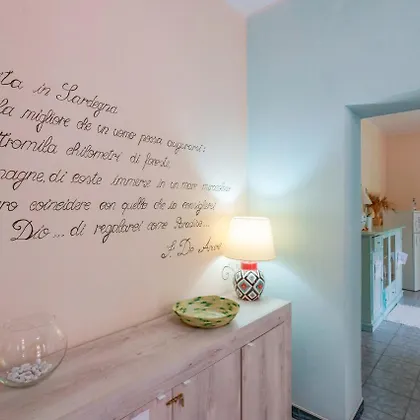 ita in Sardegna
la migliore che un uomo possa augurarsi:
ttromila chilometri di foreste,
magne, di coste immerse in un mare miracoloso
ro coincidere con quello che io consiglierei
Dio... di regalarci come Paradiso...
F. De André